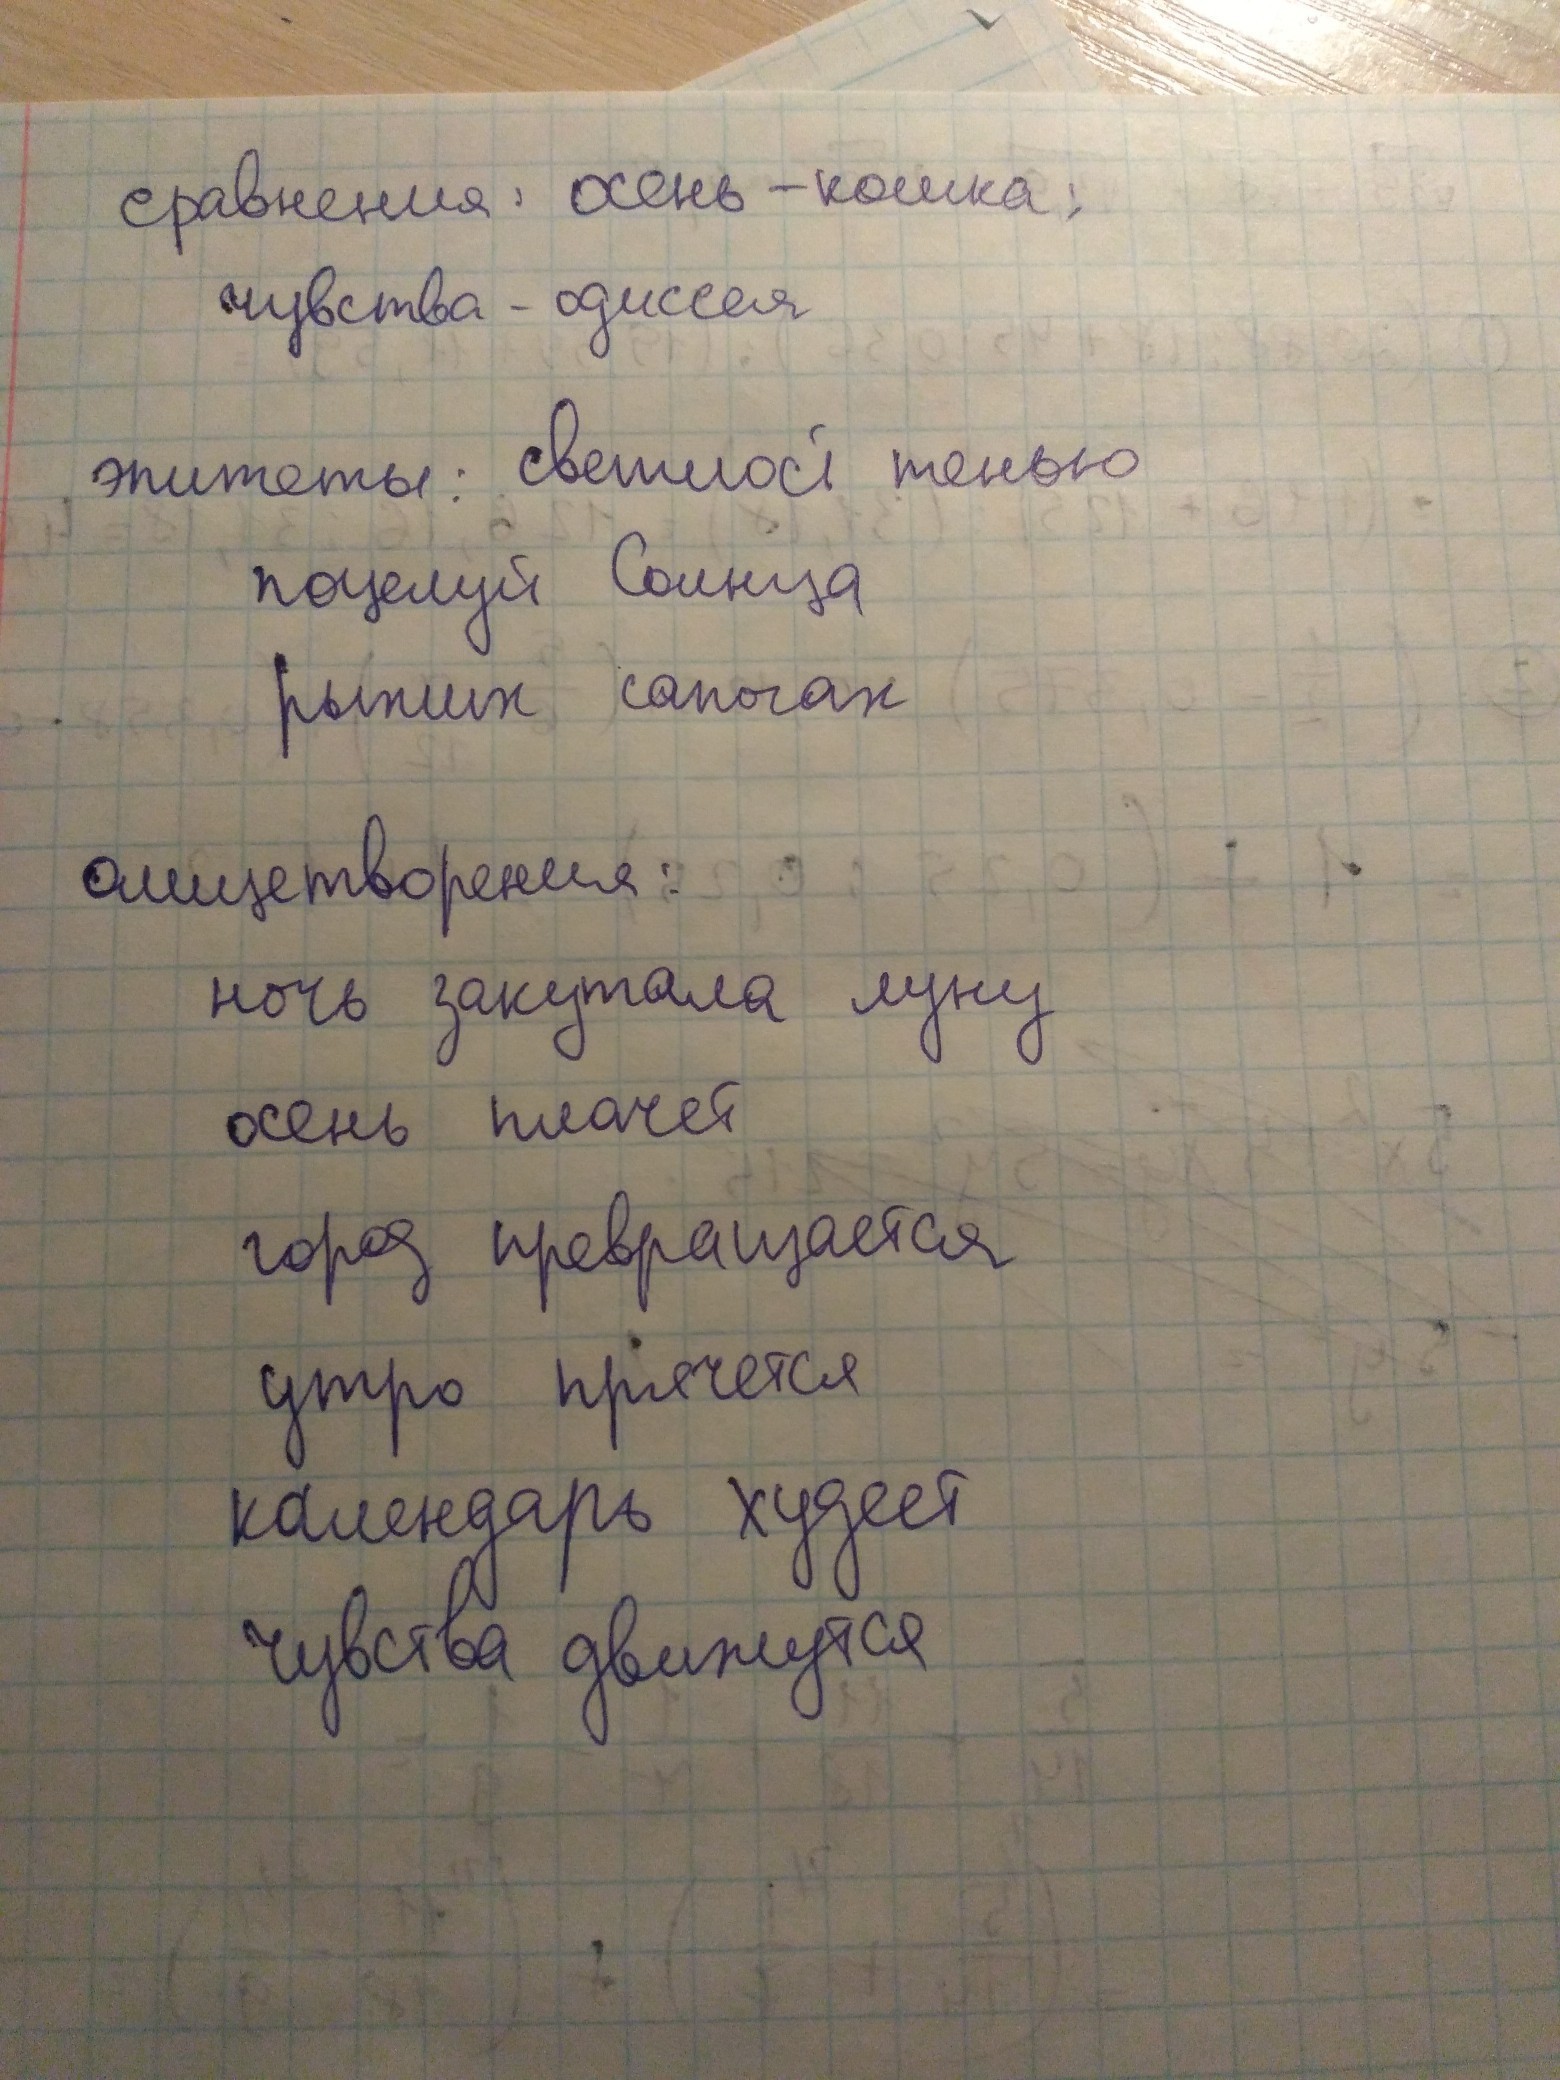 сравнения: осень - кошка;
чувства - одиссея
эпитеты: светлой тенью
поцелуй Солнца
рыжих сапогах
олицетворения:
ночь закутала луну
осень плачет
город превращается
утро прячется
календарь худеет
чувства движутся